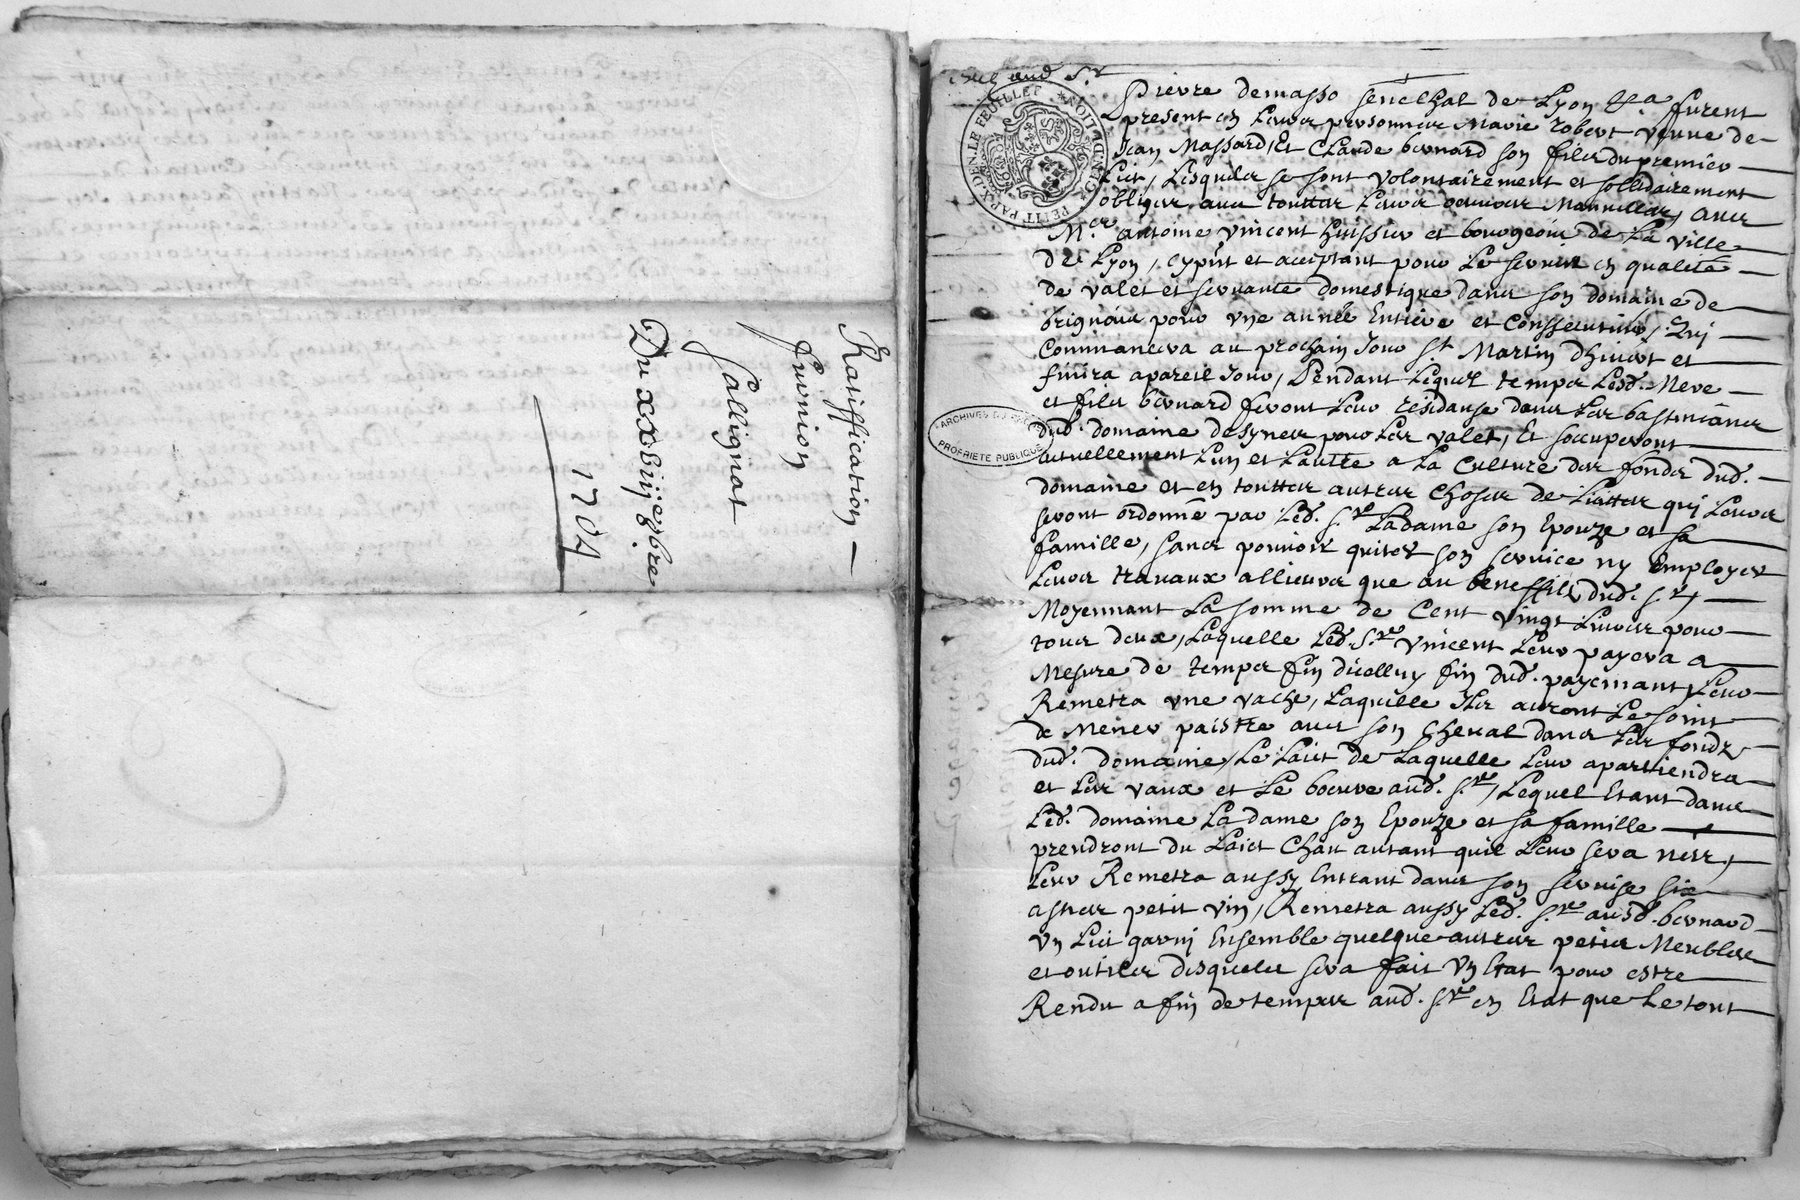 Ratiffication
furnion
Sallignat
Du xxviije 9bre
1704
aud Sr
Pierre demasso senechal de Lyon &a furent
present en Leurs personnes Marie robert veuve de
Jean Massard, Et Claude bernard son fils du premier
Lict, Lesquels se sont volontairement et sollidairement
obliges, avec touttes Leurs oeuvres Manuelles, avec
Mer antoine vincent huissier et bourgeois de La ville
de Lyon, cypnt et acceptant pour Le servir en qualité
de valet et servante domestique dans son domaine de
brignais pour une année Entiere et Conssecutive, Qui
Commancera au prochain Jour St Martin dhivert et
finira apareil Jour, Pendant Lequel temps Lesd. Mere
et fils bernard feront Leur residanse dans Les bastimans
dud. domaine desynes pour Les valet, Et soccuperont
actuellement Lun et Lautre a La Culture des fonds dud.
domaine et en touttes autres Choses de Licittes qui Leurs
seront ordonné par Led. Sre La dame son Epouze et sa
famille, sans pouvoir quiter son service ny Employer
Leurs travaux allieurs que au beneffice dud. Sr,
Moyennant La somme de Cent vingt Livres pour
tous deux, Laquelle Led. Sre vincent Leur payera a
Mesure de temps fin dicelluy fin dud. payemant, Leur
Remetra une vache, Laquelle Ils auront Le soint
de Mener paistre avec son Cheval dans Les fondz
dud. domaine, Le Laict de Laquelle Leur apartiendra
et Les vaux et Le beurre aud. Sre, Lequel Etant dans
Led. domaine La dame son Epouze et sa famille
prendront du Laict Chau autant quil Leur sera ness,
Leur Remetra aussy Entrant dans son servise six
asnes petit vin, Remetra aussy Led. Sre ausd. bernard
Un Lict garni Ensemble quelque autres petits Meubles
et outils desquels sera fait Un Etat pour estre
Rendu a fin de temps aud. Sre en Etat que Le tout
PETIT PAP. A DEN. LE FEUILLET
PROPRIETE PUBLIQUE